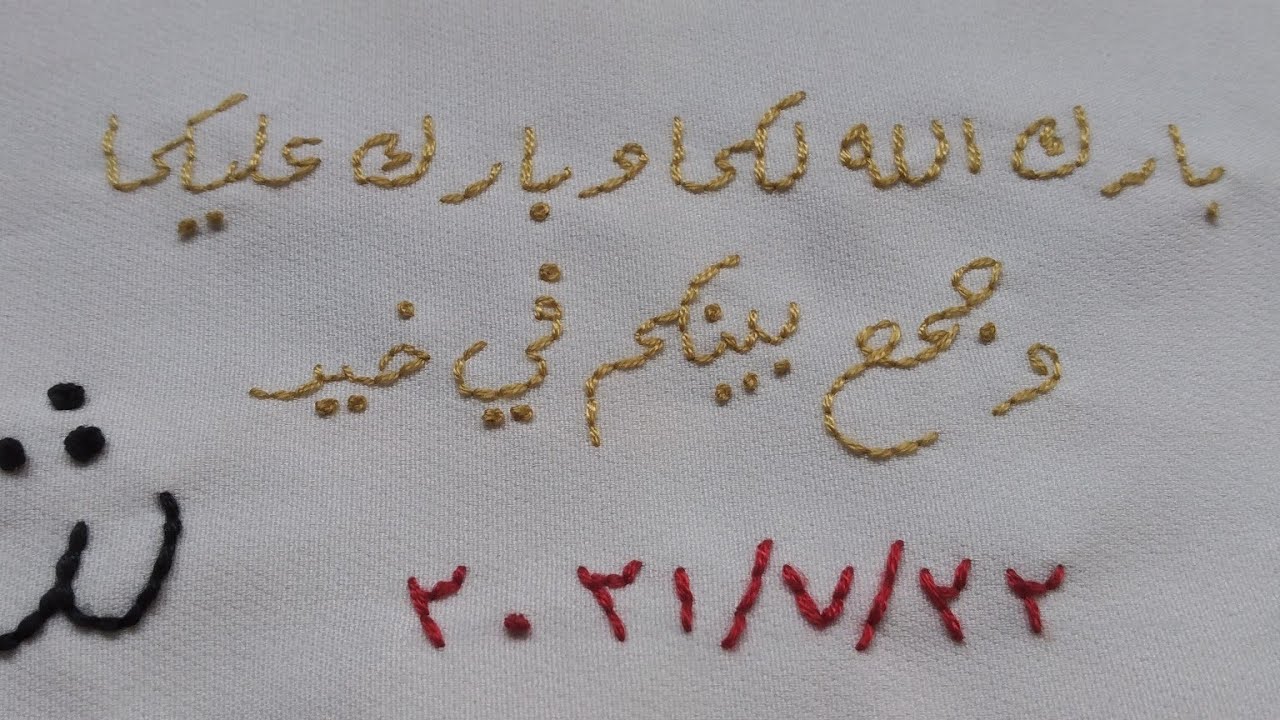 بارك الله لكما وبارك عليكما
وجمع بينكم في خير
٢٠٢١/٧/٢٢